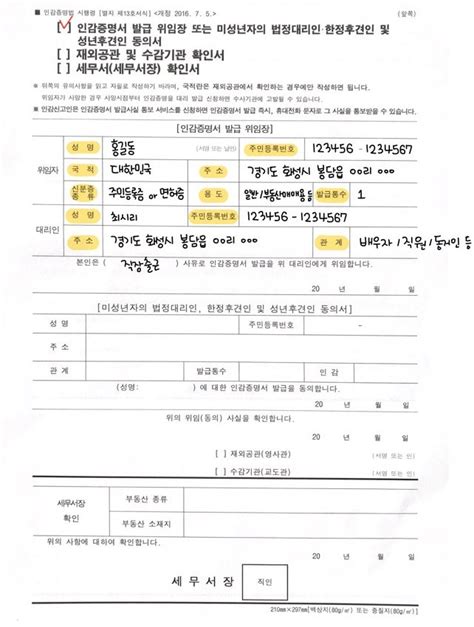 ■ 인감증명법 시행령 [별지 제13호서식] <개정 2016. 7. 5.> (앞쪽)
[✓] 인감증명서 발급 위임장 또는 미성년자의 법정대리인·한정후견인 및
성년후견인 동의서
[ ] 재외공관 및 수감기관 확인서
[ ] 세무서(세무서장) 확인서
※ 뒤쪽의 유의사항을 읽고 자필로 작성하기 바라며, 국적란은 재외공관에서 확인하는 경우에만 작성하면 됩니다.
위임자가 사망한 경우 사망시점부터 인감증명을 대리 발급 신청하면 수사기관에 고발될 수 있습니다.
■ 인감신고인은 인감증명서 발급사실 통보 서비스를 신청하면 인감증명서 발급 즉시, 휴대전화 문자로 그 사실을 통보받을 수 있습니다.
[인감증명서 발급 위임장]
위임자 성 명 홍길동 (서명 또는 날인) 주민등록번호 123456 - 1234567
국 적 대한민국 주 소 경기도 화성시 봉담읍 00리 000
신분증 종류 주민등록증 or 면허증 용 도 일반/부동산매매용 등 발급통수 1
대리인 성 명 최시리 주민등록번호 123456 - 1234567
주 소 경기도 화성시 봉담읍 00리 000 관 계 배우자/직원/동거인 등
본인은 ( 직장출근 ) 사유로 인감증명서 발급을 위 대리인에게 위임합니다.
[미성년자의 법정대리인, 한정후견인 및 성년후견인 동의서]
성 명 주민등록번호 -
주 소
관 계 발급통수 인 감
(성명: ) 에 대한 인감증명서 발급을 동의합니다.
20 년 월 일
위의 위임(동의) 사실을 확인합니다.
20 년 월 일
[ ] 재외공관(영사관) (서명 또는 인)
[ ] 수감기관(교도관) (서명 또는 인)
세무서장 확인 부동산 종류
부동산 소재지
위의 사항에 대하여 확인합니다.
20 년 월 일
세 무 서 장 직인
210㎜×297㎜[백상지(80g/㎡) 또는 중질지(80g/㎡)]